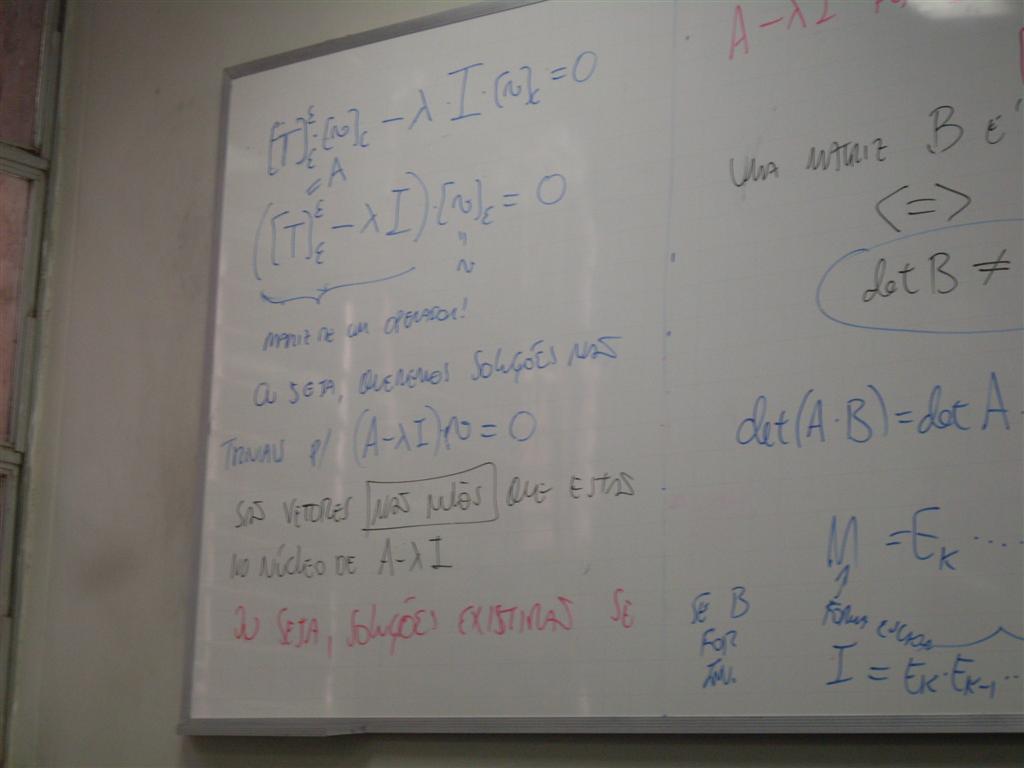 [T]ᵋ_ε · [v]_ε − λ · I · [v]_ε = 0
= A
([T]ᵋ_ε − λ I) · [v]_ε = 0
"
v
MATRIZ DE UM OPERADOR!
OU SEJA, QUEREMOS SOLUÇÕES NÃO
TRIVIAIS P/ (A−λI)v = 0
SÃO VETORES NÃO NULOS QUE ESTÃO
NO NÚCLEO DE A−λI
OU SEJA, SOLUÇÕES EXISTIRÃO SE
A−λI
UMA MATRIZ B É
<=>
det B ≠
det(A·B) = det A
M = E_K ....
FORMA ESCADA
SE B
FOR
INV.
I = E_K·E_K-1 ..